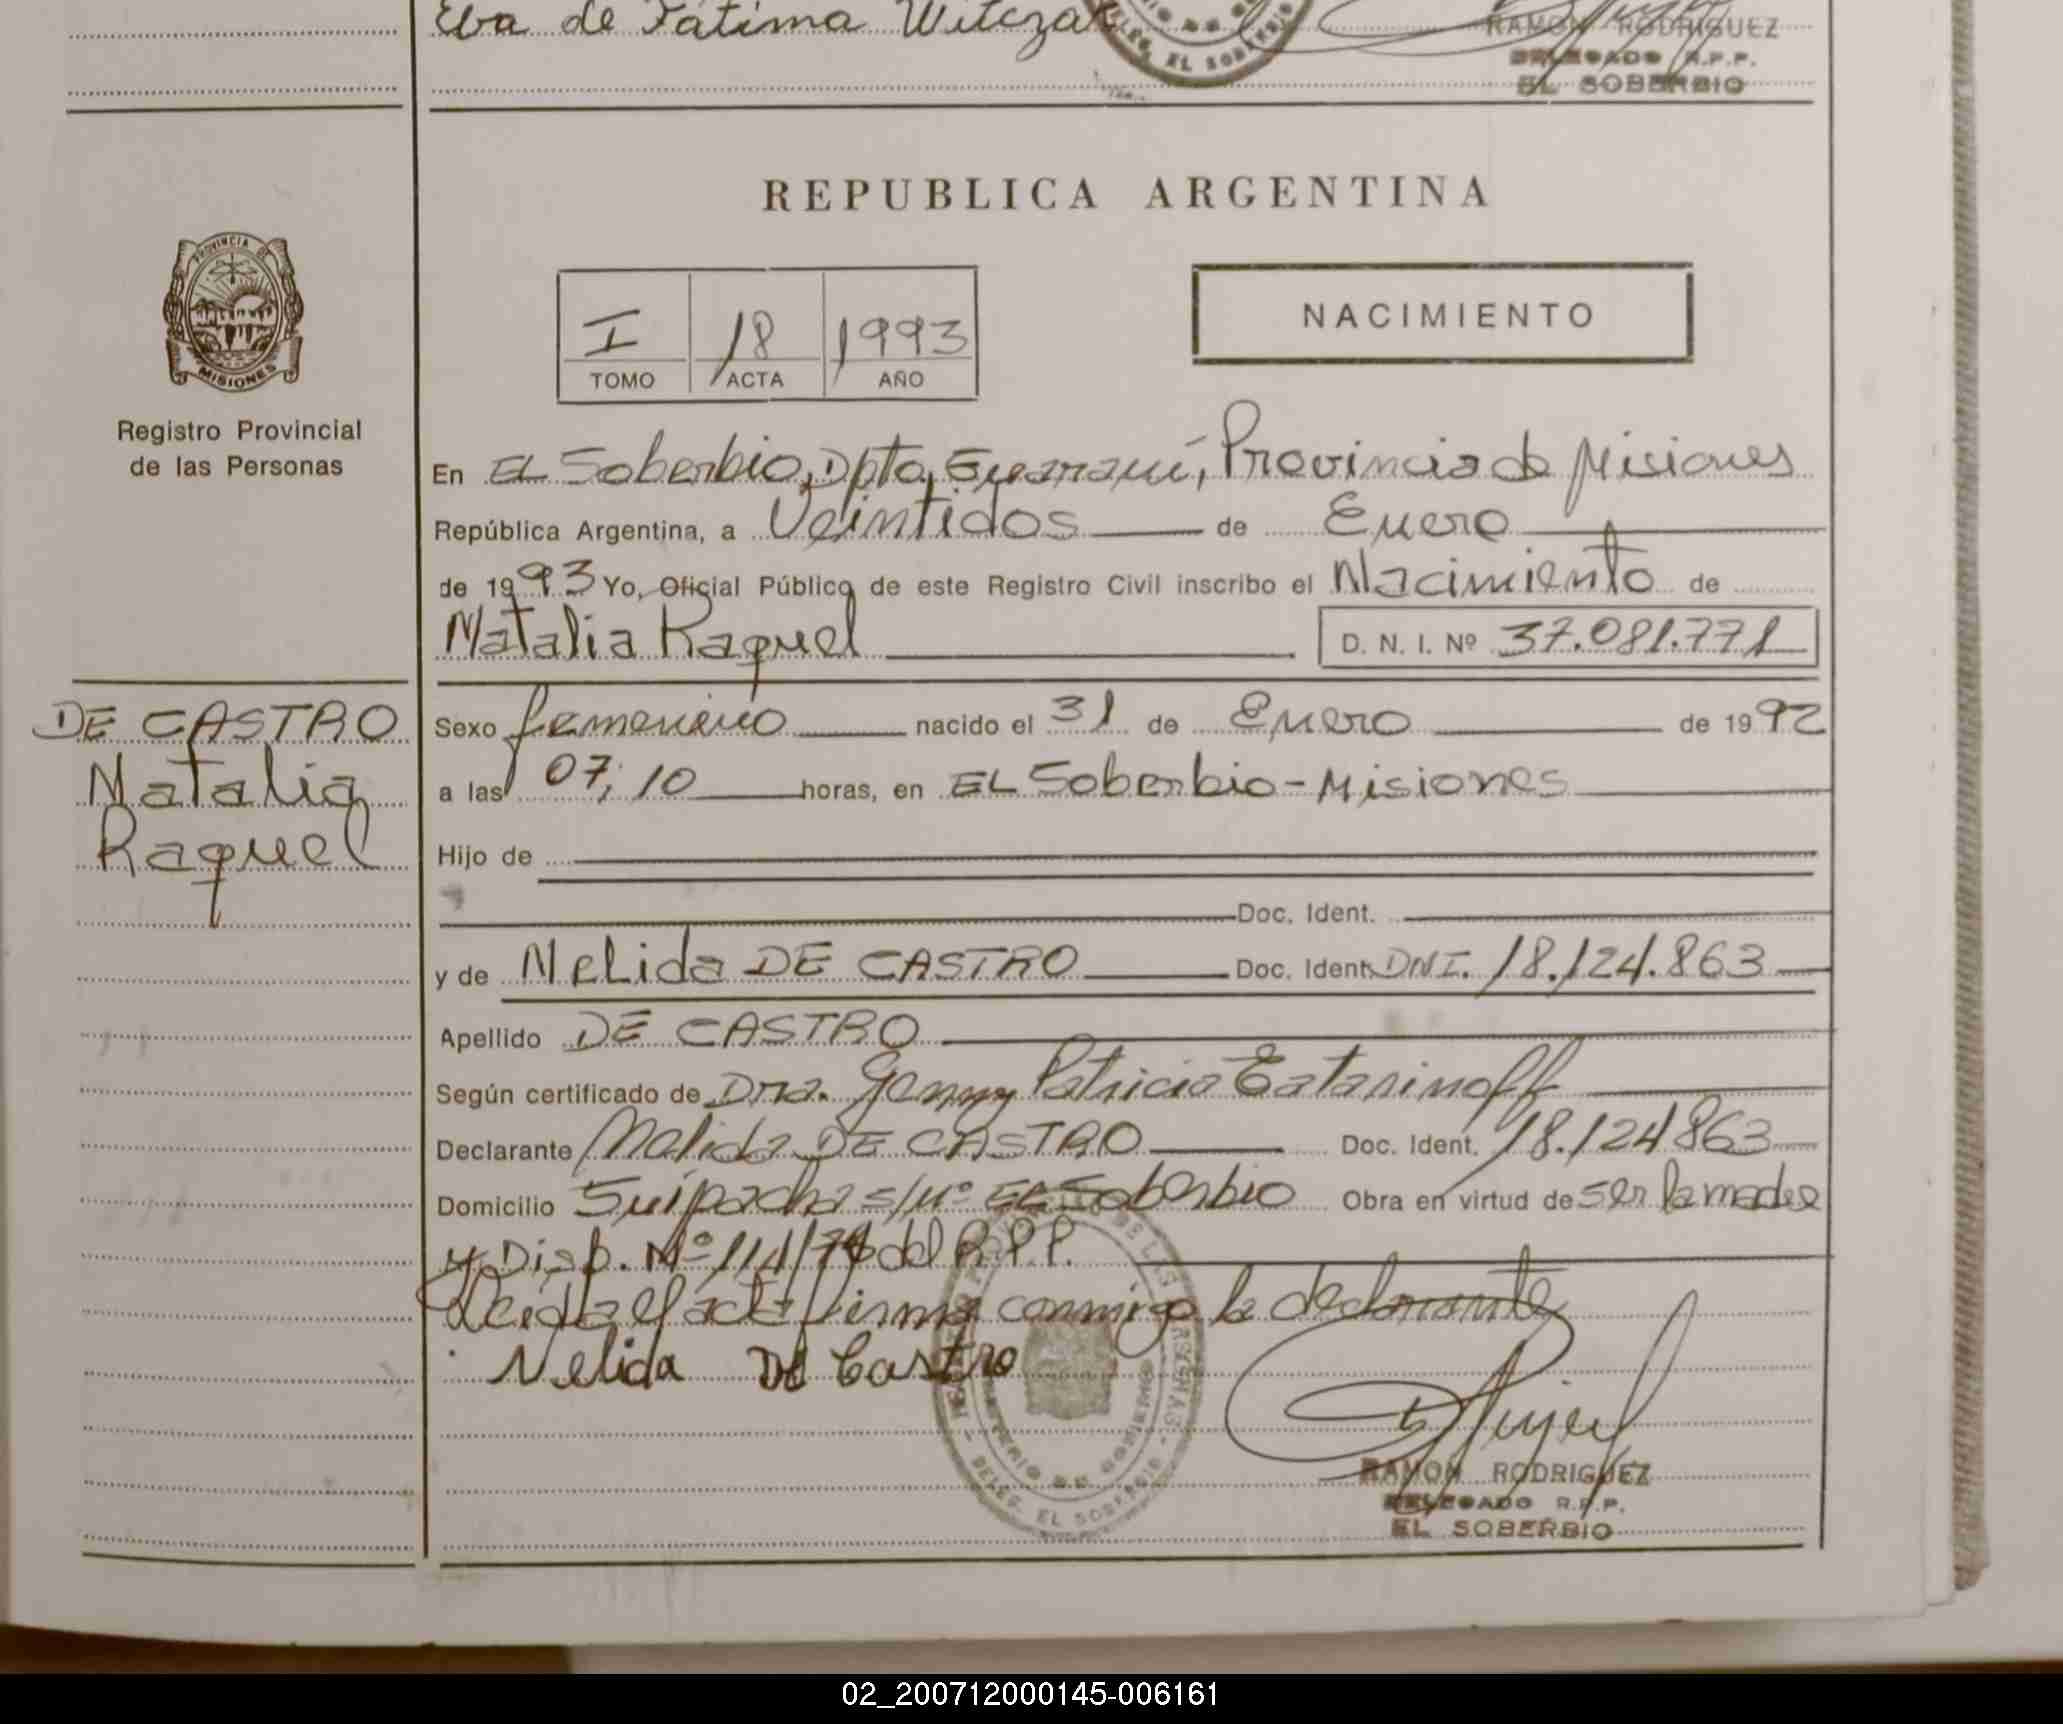 Eva de Fátima Witczak
RAMON RODRIGUEZ
DELEGADO R.P.P.
EL SOBERBIO
REPUBLICA ARGENTINA
PROVINCIA DE
MISIONES
Registro Provincial
de las Personas
I 18 1993
TOMO ACTA AÑO
NACIMIENTO
En EL Soberbio, Dpto, Guaraní, Provincia de Misiones
República Argentina, a Veintidos de Enero
de 1993 Yo, Oficial Público de este Registro Civil inscribo el Nacimiento de
Natalia Raquel D. N. I. Nº 37.081.771
DE CASTRO
Natalia
Raquel
Sexo femenino nacido el 31 de Enero de 1992
a las 07;10 horas, en EL Soberbio-Misiones
Hijo de
Doc. Ident.
y de NELida DE CASTRO Doc. Ident. DNI. 18.124.863
Apellido DE CASTRO
Según certificado de Dra. Jenny Patricia
Declarante Nelida DE CASTRO Doc. Ident. 18.124.863
Domicilio Suipacha s/nº EL Soberbio Obra en virtud de ser la madre
y Disp. Nº 114/ del R.P.P.
Leída el acta firma conmigo la declarante
Nelida DE Castro
DELEG. EL SOBERBIO
RAMON RODRIGUEZ
DELEGADO R.P.P.
EL SOBERBIO
02_200712000145-006161